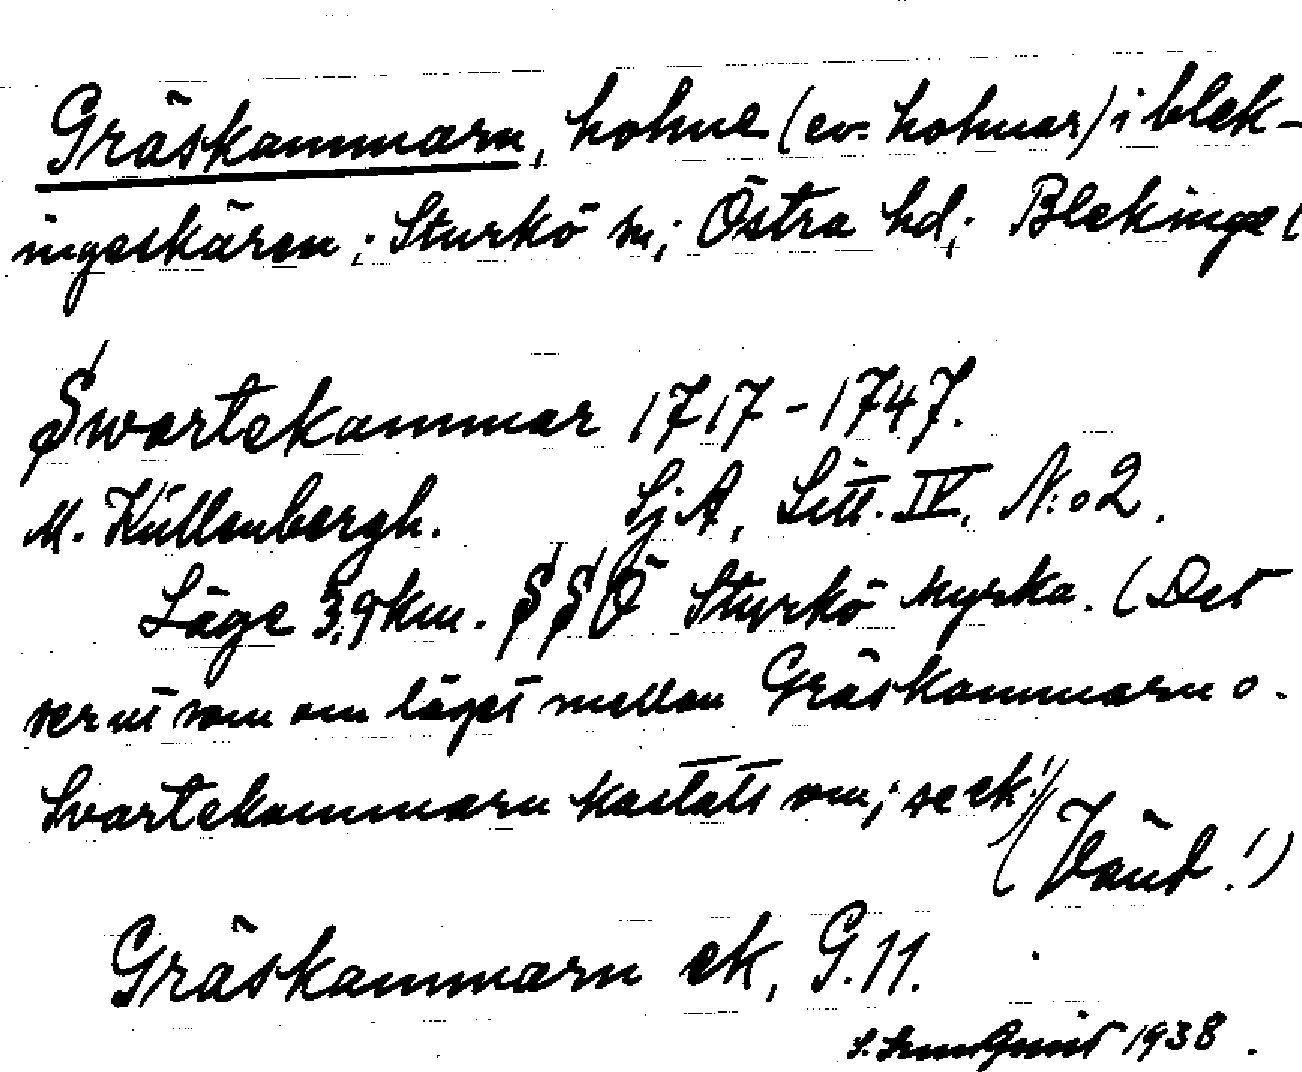 Gräskammarn, holme (ev. holmar) i blek-
ingeskären; Sturkö sn; Östra hd; Blekinge l
Swartekammar 1717-1747.
M. Küllenbergh. SjA, Litt. IV, N:o 2.
Läge 3,9 km. SSÖ Sturkö kyrka. (Det
ser ut som om läget mellan Gräskammarn o.
Svartekammarn kastats om; se ek!)
(Vänd!)
Gräskammarn ek, G.11.
1938.